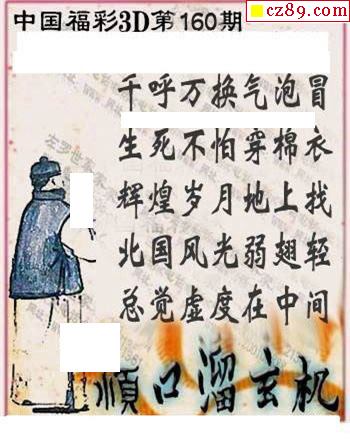 cz89.com
中国福彩3D第160期
千呼万换气泡冒
生死不怕穿棉衣
辉煌岁月地上找
北国风光弱翅轻
总觉虚度在中间
顺口溜玄机